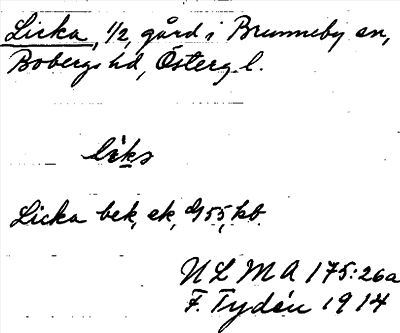 Licka, 1/2, gård i Brunneby sn,
Bobergs hd, Österg l.
liks
Licka bek, ek, 955, kb.
ULMA 175:26a
F. Tydén 1914